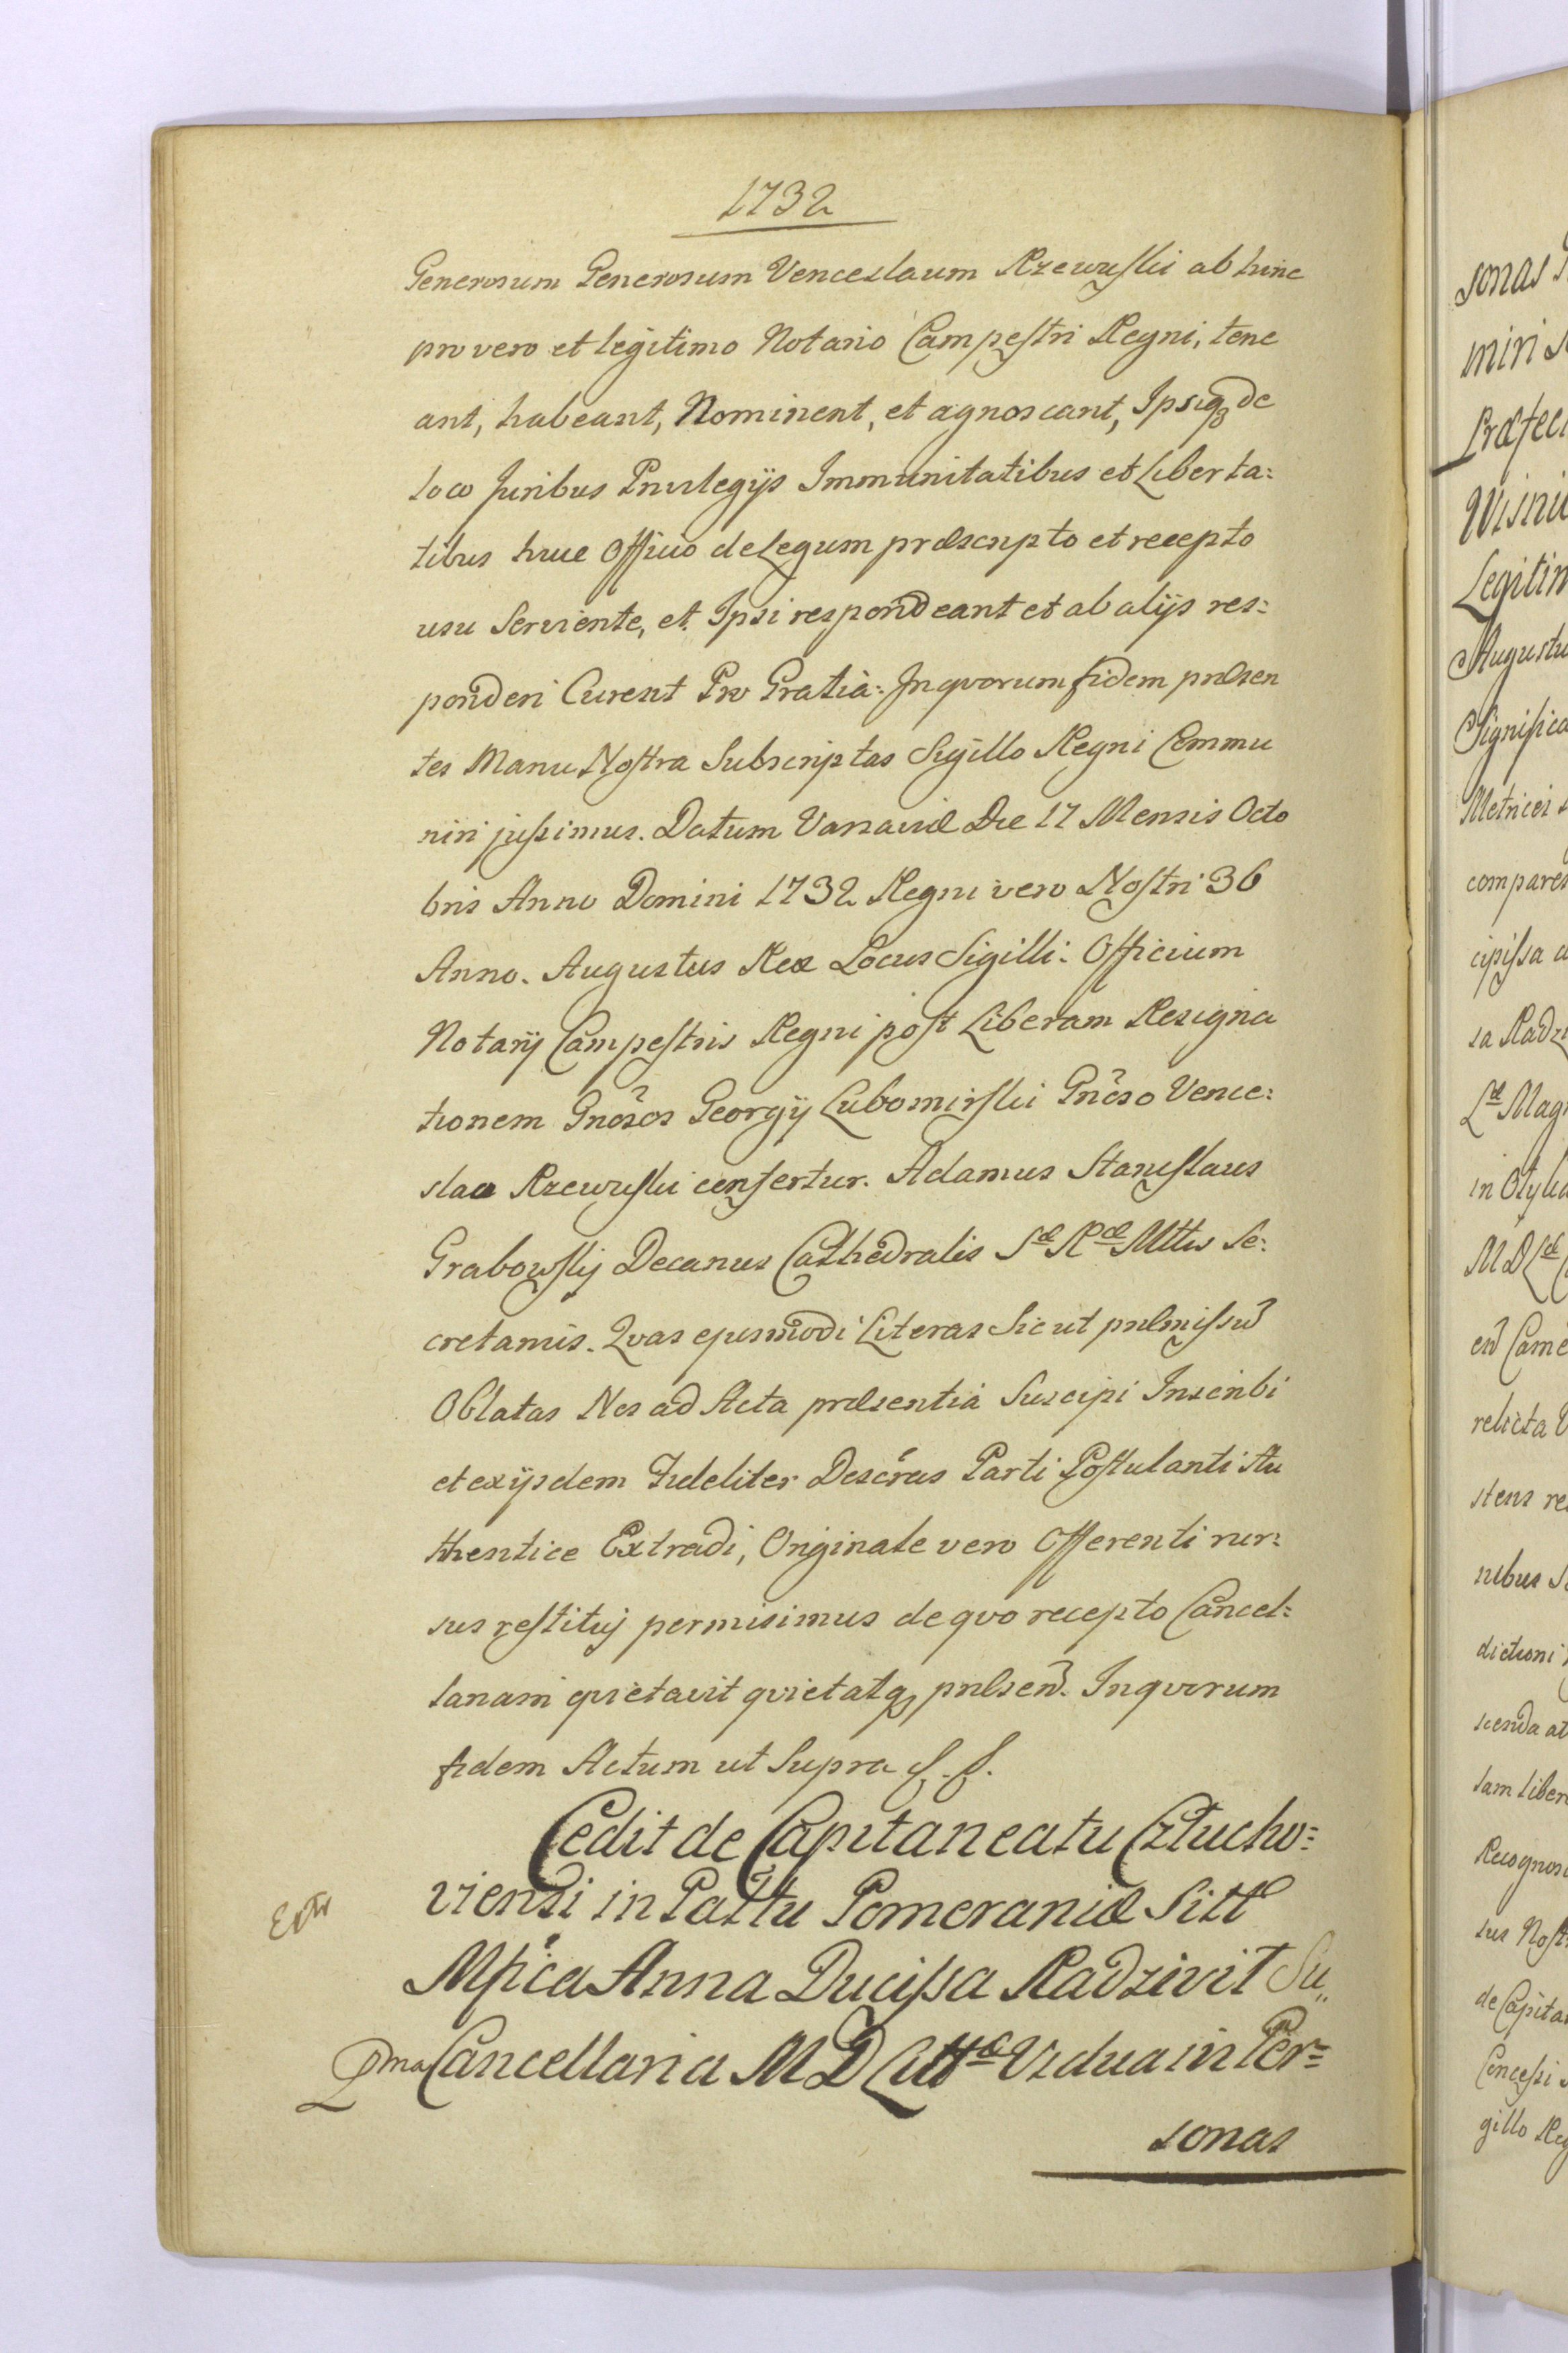 1732
Generosum Generosum Venceslaum Rzewuski ab hinc
pro vero et legitimo Notario Campestri Regni, tene
ant, habeant, Nominent, et agnoscant, Ipsiqz de
loco Juribus Privilegijs Immunitatibus et Liberta=
tibus huic Officio de Legum præscripto et recepto
usu Serviente, et Ipsi respondeant et ab alijs res=
ponderi Curent Pro Gratia: In qvorum fidem præsen
tes Manu Nostra Subscriptas Sigillo Regni Commu
niri jussimus. Datum Varsaviæ Die 17 Mensis Octo
bris Anno Domini 1732 Regni vero Nostri 36
Anno. Augustus Rex Locus Sigilli: Officium
Notarij Campestris Regni post Liberam Resigna
tionem Gnosos Georgij Lubomirski Gnoso Vence=
slao Rzewuski confertur. Adamus Stanislaus
Grabowskij Decanus Cathedralis Sæ Ræ Mttis Se=
cretarius. Qvas ejusmodi Literas Sicut præmissu
Oblatas Nos ad Acta præsentia Suscipi Inscribi
et ex ijsdem Fideliter Descras Parti Postulanti Au
thentice Extradi, Originale vero Offerenti rur=
sus restituj permisimus de qvo recepto Cancel=
lariam qvietavit qvietatqz præsen. In qvorum
fidem Actum ut Supra
Cedit de Capitaneatu Człucho=
viensi in Pattu Pomeraniæ Sitto
Mfica Anna Ducissa Radziwił Su,,
Pma Cancellaria M D Littæ Vidua in Per=
sonas
sonas
miri
Præfec
Wisni
Legitim
Augustu
Significa
Metrices
compares
cipissa
sa Radzi
Læ Mag
in Otylia
M D Læ
en Came
relicta
stens re
nibus
dictioni
scenda at
lam liber
Recognos
sus Nost
de Capita
Concessi
gillo Reg